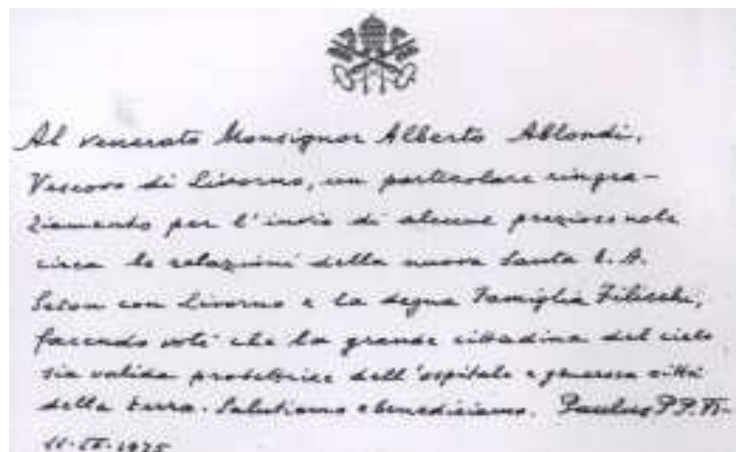 Al venerato Monsignor Alberto Ablondi,
Vescovo di Livorno, un particolare ringra-
ziamento per l'invio di alcune preziose note
circa le relazioni della nuova Santa E. A.
Seton con Livorno e la degna Famiglia Filicchi,
facendo voti che la grande cittadina del cielo
sia valida protettrice dell'ospitale e generosa città
della terra. Salutiamo e benediciamo. Paulus PP. VI-
1975